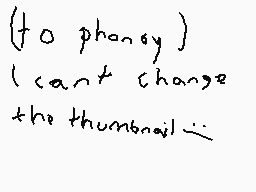 (to phonsy)
I cant change
the thumbnail :(